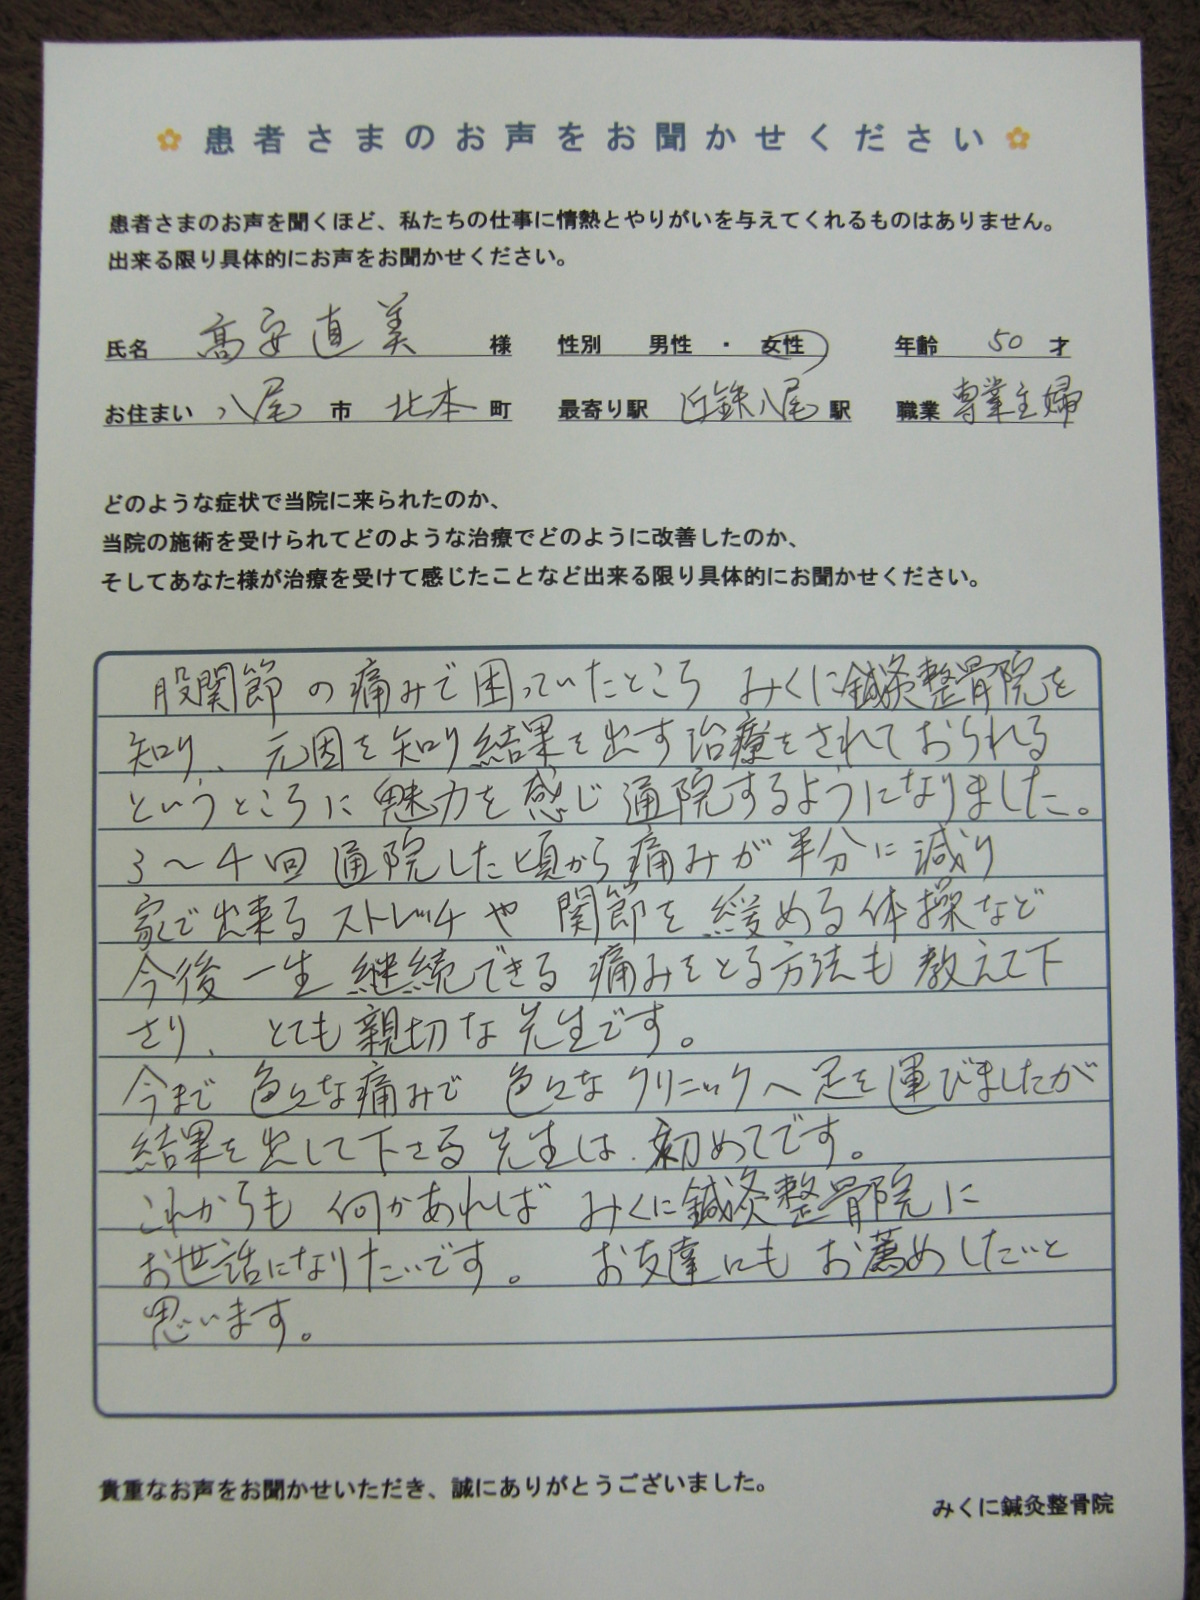 患者さまのお声をお聞かせください
患者さまのお声を聞くほど、私たちの仕事に情熱とやりがいを与えてくれるものはありません。
出来る限り具体的にお声をお聞かせください。
氏名 髙安直美 様 性別 男性 ・ 女性 年齢 50 才
お住まい 八尾 市 北本 町 最寄り駅 近鉄八尾 駅 職業 専業主婦
どのような症状で当院に来られたのか、
当院の施術を受けられてどのような治療でどのように改善したのか、
そしてあなた様が治療を受けて感じたことなど出来る限り具体的にお聞かせください。
股関節の痛みで困っていたところ みくに鍼灸整骨院を
知り、元因を知り結果を出す治療をされておられる
というところに魅力を感じ通院するようになりました。
3〜4回通院した頃から痛みが半分に減り
家で出来るストレッチや関節を緩める体操など
今後一生継続できる痛みをとる方法も教えて下
さり、とても親切な先生です。
今まで色々な痛みで色々なクリニックへ足を運びましたが
結果を出して下さる先生は初めてです。
これからも何かあればみくに鍼灸整骨院に
お世話になりたいです。お友達にもお薦めしたいと
思います。
貴重なお声をお聞かせいただき、誠にありがとうございました。
みくに鍼灸整骨院